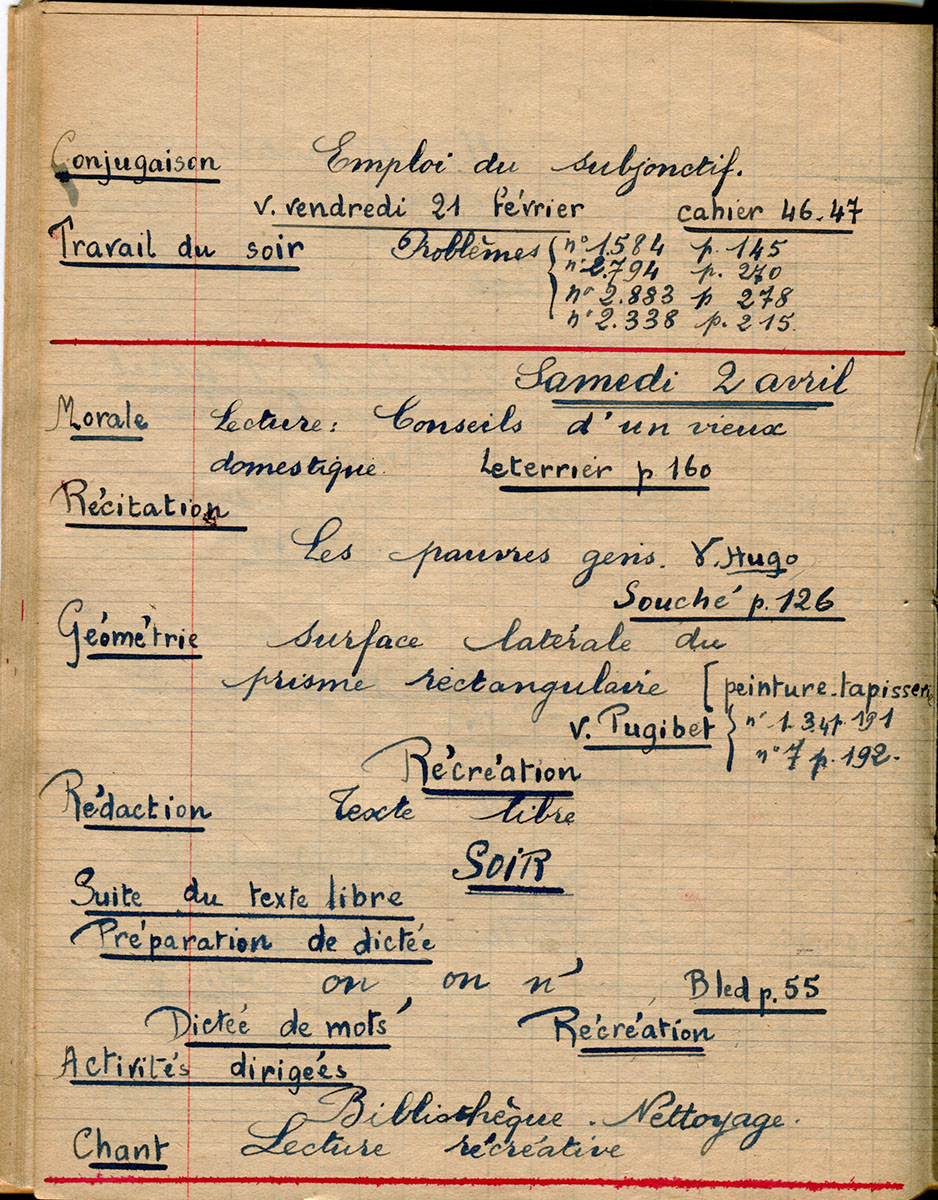 Conjugaison Emploi du subjonctif.
v. vendredi 21 février cahier 46-47
Travail du soir Problèmes { n° 1.584 p. 145
n° 2.794 p. 270
n° 2.883 p 278
n° 2.338 p. 215.
Samedi 2 avril
Morale Lecture: Conseils d'un vieux
domestique. Leterrier p. 160
Récitation
Les pauvres gens. V. Hugo
Souché p. 126
Géométrie surface latérale du
prisme rectangulaire [peinture-tapisserie
v. Pugibet { n° 1.3.4 p. 191
n° 7 p. 192.
Récréation
Rédaction Texte libre
SOIR
Suite du texte libre
Préparation de dictée
on on n' Bled p. 55
Dictée de mots Récréation
Activités dirigées
Bibliothèque. Nettoyage.
Chant Lecture récréative